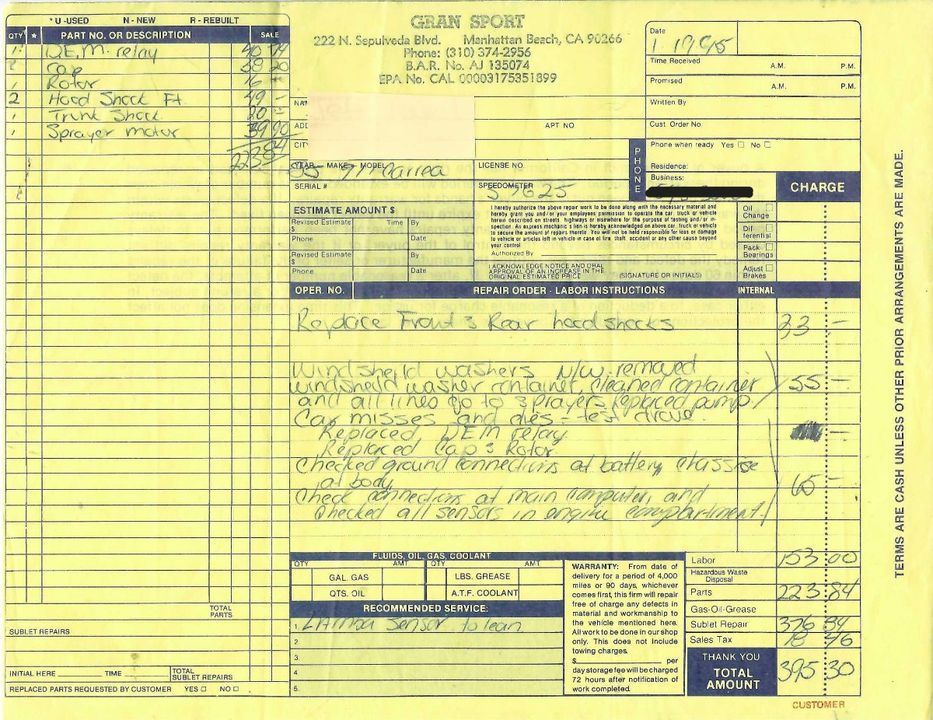 * U -USED N - NEW R - REBUILT
QTY * PART NO. OR DESCRIPTION SALE
1 D.E.M. relay 40 84
Cap 58 20
1 Rotor 16 -
2 Hood Shock Ft. 49 -
1 Trunk Shock 20 -
1 Sprayer motor 39 80
223 84
TOTAL PARTS
SUBLET REPAIRS
INITIAL HERE TIME TOTAL SUBLET REPAIRS
REPLACED PARTS REQUESTED BY CUSTOMER YES NO
GRAN SPORT
222 N. Sepulveda Blvd. Manhattan Beach, CA 90266
Phone: (310) 374-2956
B.A.R. No. AJ 135074
EPA No. CAL 00003175351899
Date
Time Received A.M. P.M.
Promised A.M. P.M.
Written By
APT NO
Cust. Order No.
PHONE
Phone when ready Yes No
Residence:
Business:
CHARGE
YEAR - MAKE - MODEL LICENSE NO.
911 Carrea
SERIAL # SPEEDOMETER
57625
ESTIMATE AMOUNT $
Revised Estimate Time By
$
Phone Date
Revised Estimate By
$
Phone Date
I hereby authorize the above repair work to be done along with the necessary material and
hereby grant you and/or your employees permission to operate the car, truck or vehicle
herein described on streets, highways or elsewhere for the purpose of testing and/or in-
spection. An express mechanic's lien is hereby acknowledged on above car, truck or vehicle
to secure the amount of repairs thereto. You will not be held responsible for loss or damage
to vehicle or articles left in vehicle in case of fire, theft, accident or any other cause beyond
your control
Authorized By
I ACKNOWLEDGE NOTICE AND ORAL
APPROVAL OF AN INCREASE IN THE
ORIGINAL ESTIMATED PRICE
(SIGNATURE OR INITIALS)
Oil Change
Dif ferential
Pack Bearings
Adjust Brakes
OPER. NO. REPAIR ORDER - LABOR INSTRUCTIONS INTERNAL
Replace Front & Rear hood shocks 33 -
Windsheild washers N/W. removed
windsheild washer container, cleaned container 55 -
and all lines go to 3 sprayers Replaced pump.
Car misses and dies - test drove.
Replaced DEM relay
Replaced Cap & Rotor
Checked ground connections at battery, classise
at body 65 -
Check connections at main computer, and
Checked all sensors in engine compartment.
FLUIDS, OIL, GAS, COOLANT
QTY AMT QTY AMT
GAL. GAS LBS. GREASE
QTS. OIL A.T.F. COOLANT
RECOMMENDED SERVICE:
1. Lambda Sensor to lean
2
3.
4
5.
WARRANTY: From date of
delivery for a period of 4,000
miles or 90 days, whichever
comes first, this firm will repair
free of charge any defects in
material and workmanship to
the vehicle mentioned here.
All work to be done in our shop
only. This does not include
towing charges.
$ per
day storage fee will be charged
72 hours after notification of
work completed.
Labor 153 00
Hazardous Waste Disposal
Parts 223 84
Gas-Oil-Grease
Sublet Repair 376 84
Sales Tax 18 46
THANK YOU
TOTAL AMOUNT 395 30
CUSTOMER
TERMS ARE CASH UNLESS OTHER PRIOR ARRANGEMENTS ARE MADE.